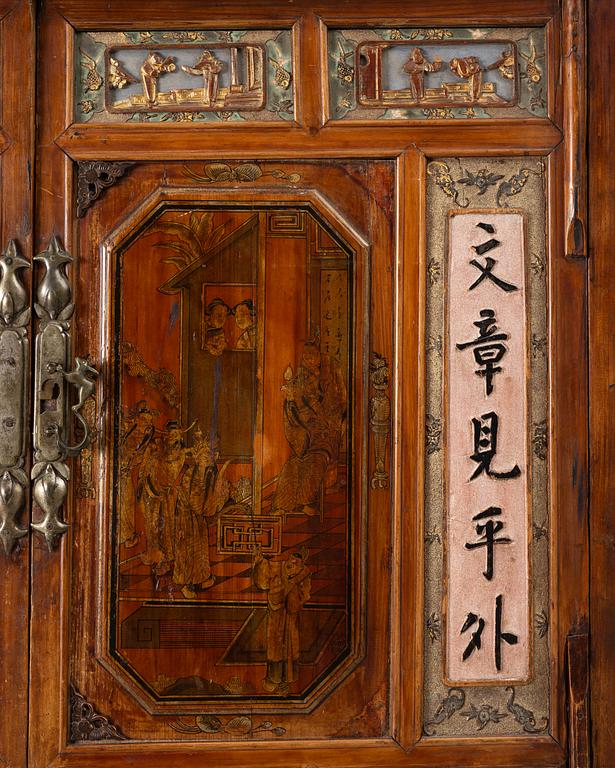 文章見乎外